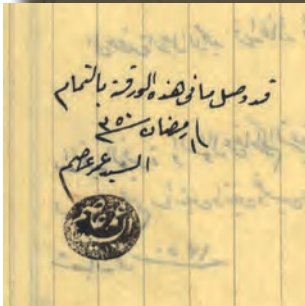 قد وصل ما فى هذه الورقة بالتمام
١١ رمضان ٣٥٠
السيد عمر عاصم